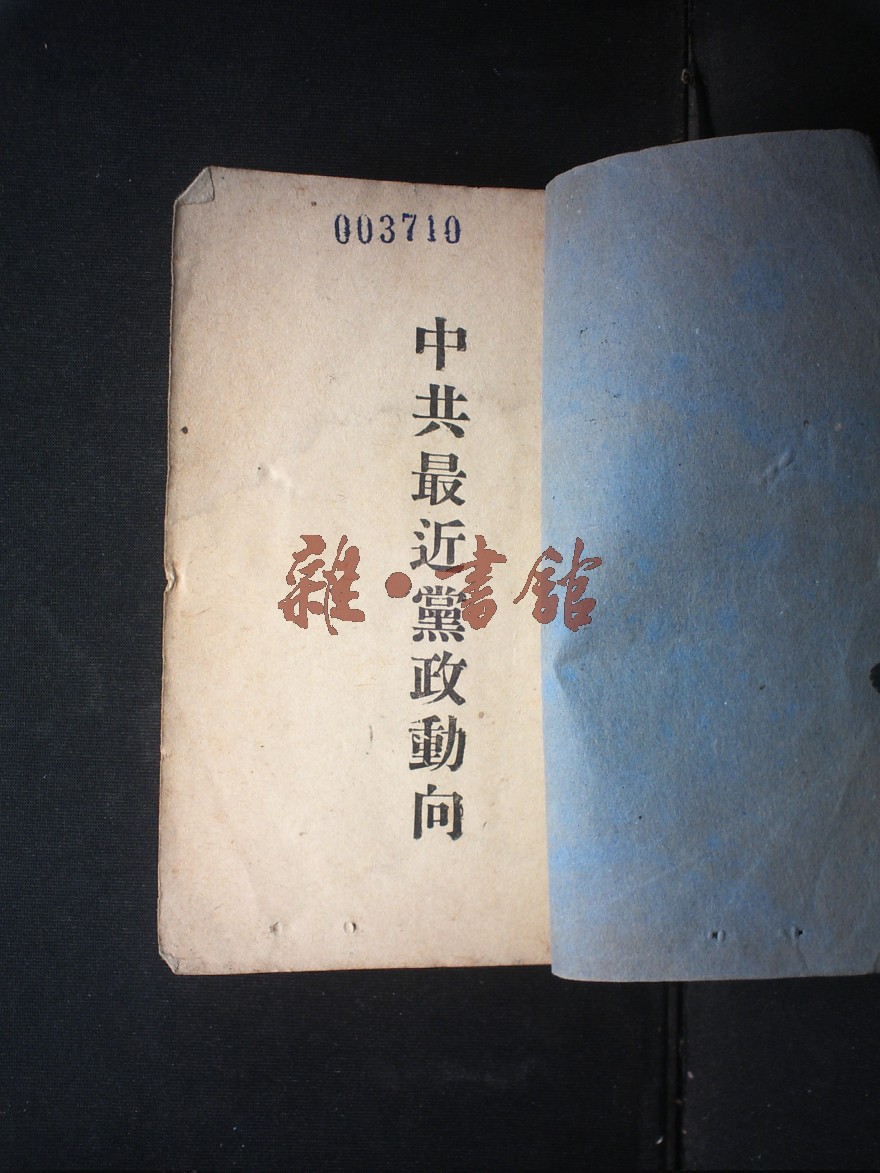 003710
中共最近黨政動向
雜·書館